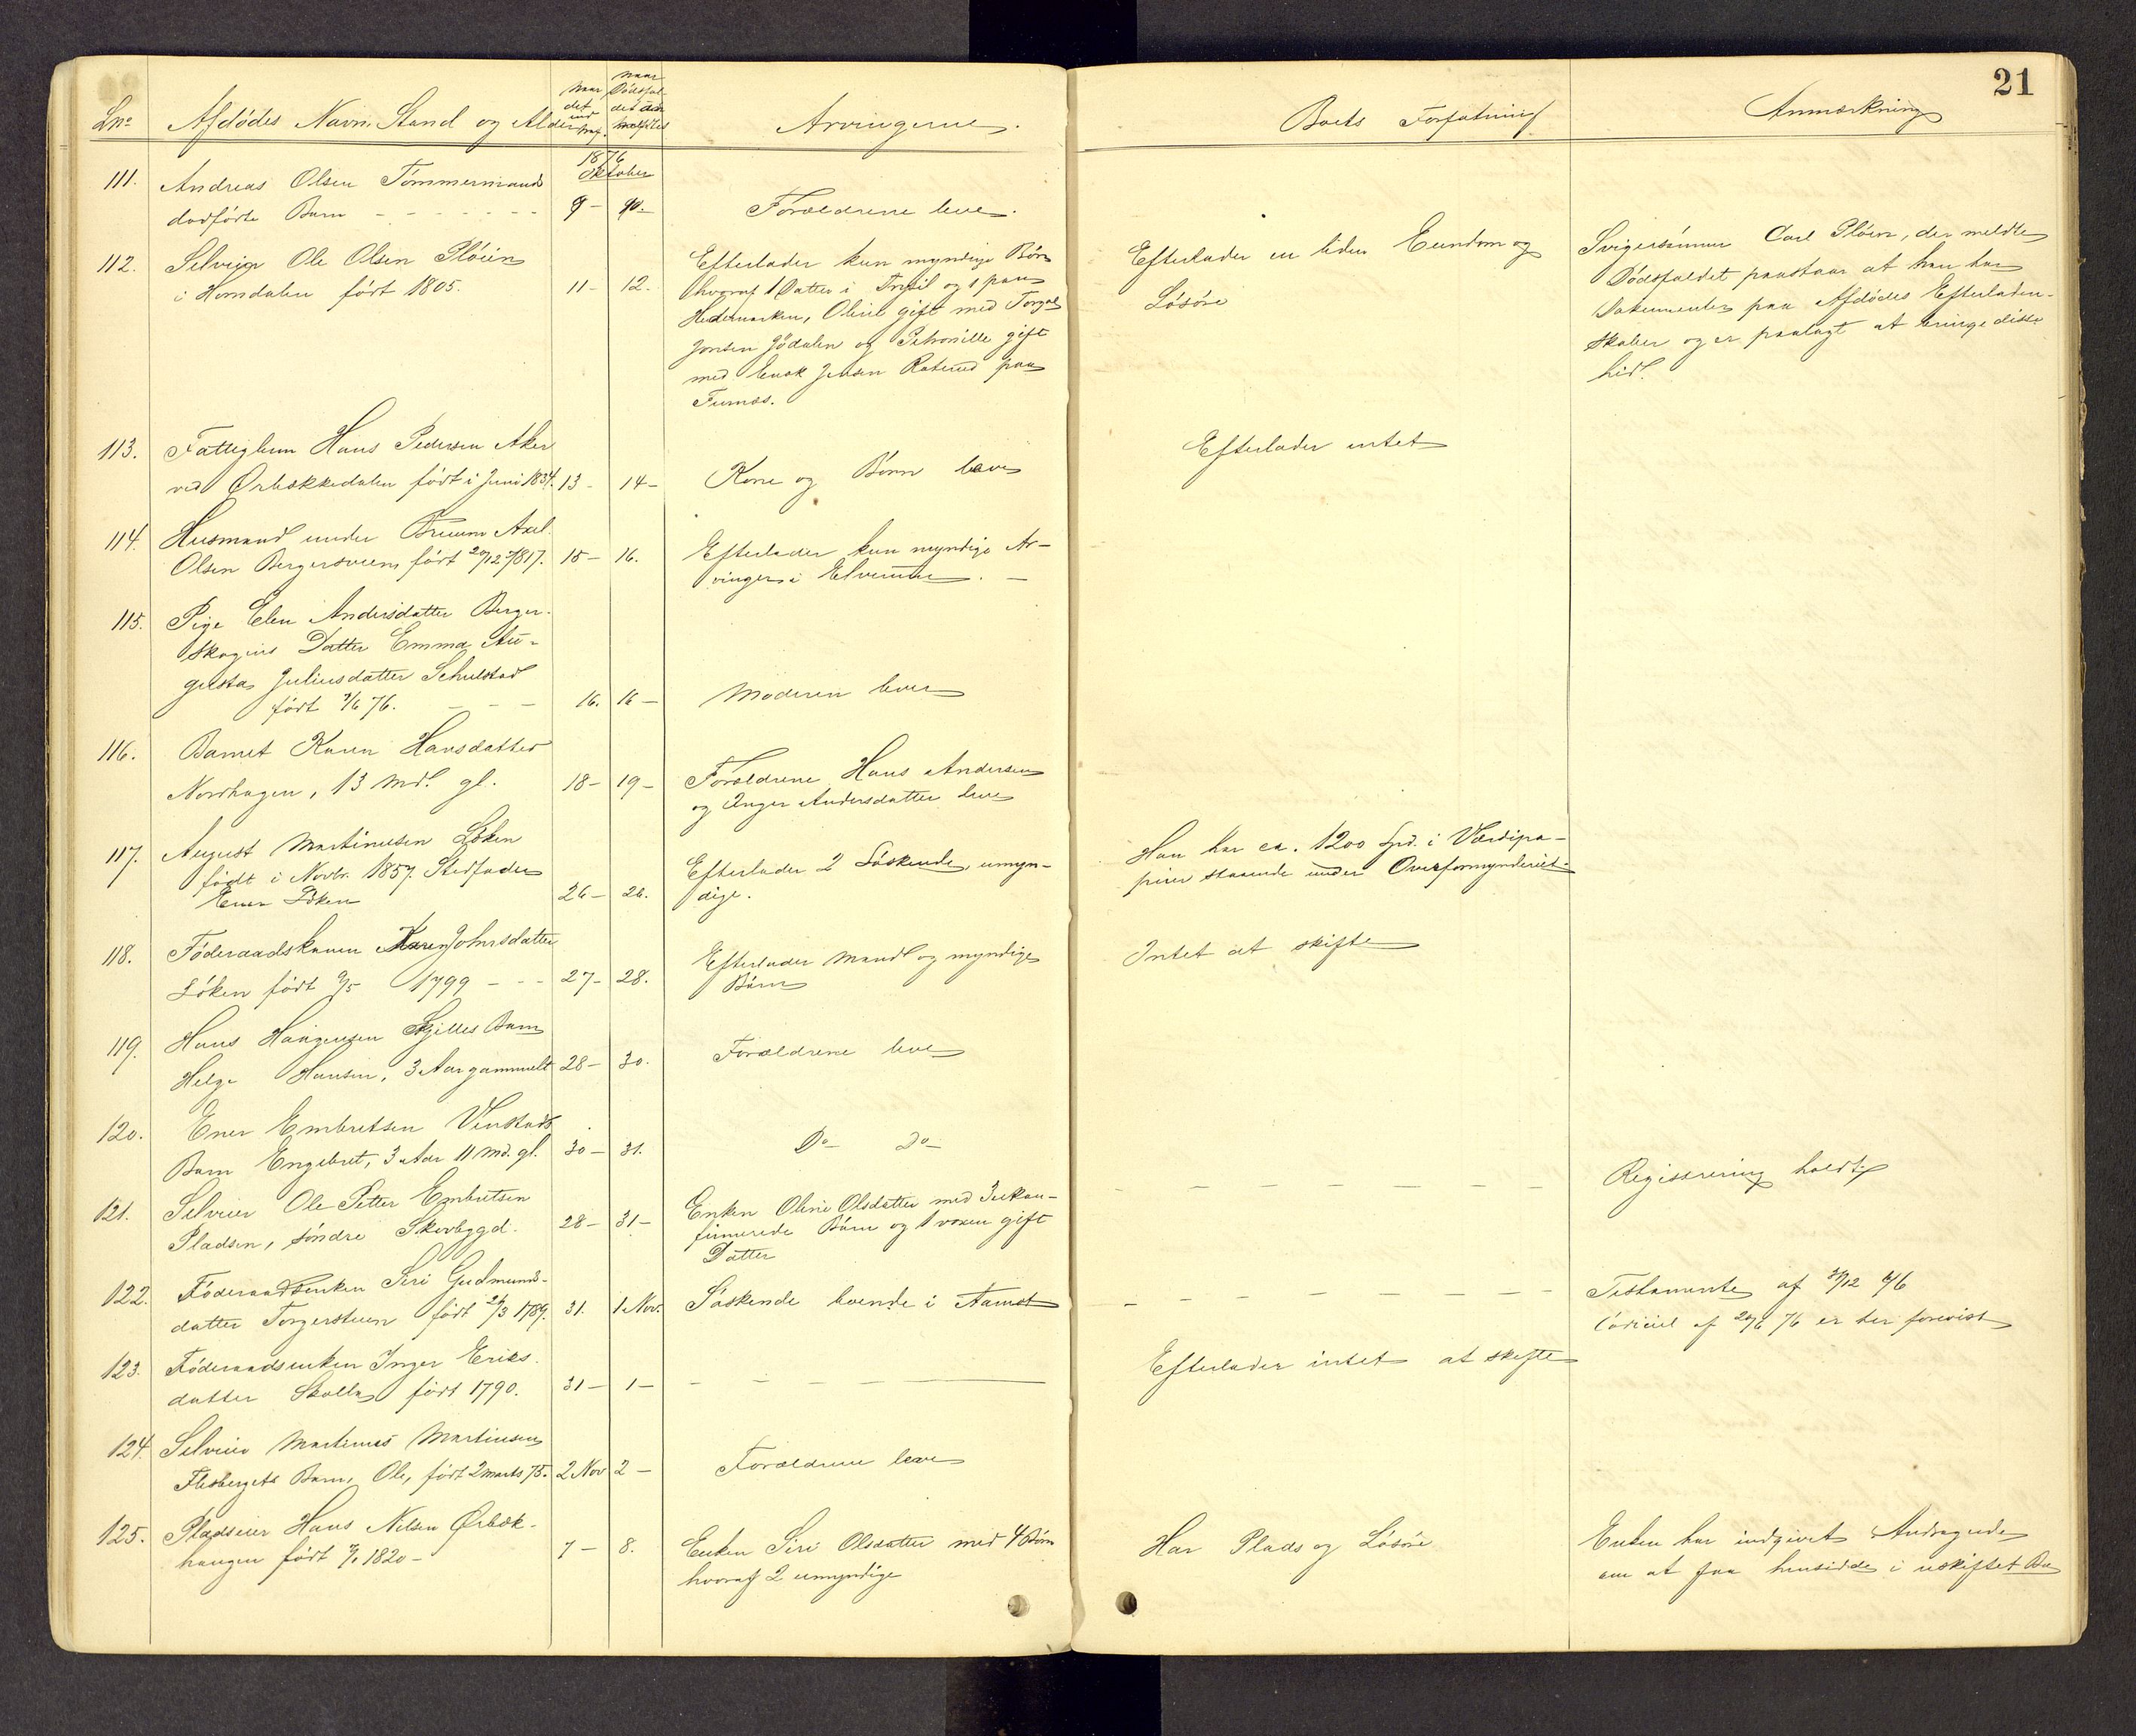 21
Lno Afdödes Navn, Stand og Alder Naar det ind traf. Naar Dödsfaldet anmeldtes Arvingerne. Boets Forfatning Anmærkning
1876
Oktober
111. Andreas Olsen Tömmermands
dødførte Barn - - - - - - 9 - 10. Forældrene leve.
112. Selveier Ole Olsen Plöien
i Homdalen født 1805. 11 - 12.
Efterlader kun myndige Børn
hvoraf 1 Datter i Trysil og 1 paa
Hedemarken, Oliné gift med Torger
Jonsen Jödalen og Petronille gift
med Enok Jensen Raterud paa
Furnæs.
Efterlader en liden Eiendom og
Lösöre
Svigersönnen Carl Plöen, der meldte
Dödsfaldet paastaar at han har
Dokumenter paa Afdödes Efterladen-
skaber og er paalagt at bringe disse
hid.
113. Fattiglem Hans Pedersen Aker
ved Ørbækkedalen født i Juni 1834. 13 - 14 - Kone og Börn leve
Efterlader intet
114. Husmand under Bruun Axel
Olsen Bergersveen født 20/12 1817. 15 - 16.
Efterlader kun myndige Ar-
vinger i Elverum. -
115. Pige Elen Andersdatter Berger-
skogens Datter Emma Au-
gusta Juliusdatter Schulstad
født 3/6 76. - - - 16. 16 - Moderen lever
116. Barnet Karen Hansdatter
Nordhagen, 13 Md. gl. 18 - 19 -
Forældrene Hans Andersen
og Inger Andersdatter leve
117. August Martinusen Löken
født i Novbr. 1857. Stedfader
Ener Löken 26 - 26.
Efterlader 2 Söskende, umyn-
dige.
Han har ca. 1200 Spd. i Værdipa-
pirer staaende under Overformynderiet
118. Föderaadskonen Karen Johnsdatter
Löken født 9/5 1799 - - - 27 - 28.
Efterlader Mand og myndige
Börn
Intet at skifte
119. Hans Haagensen Skjilles Barn
Helge Hansen, 3 Aar gammelt 28 - 30. Forældrene leve
120. Ener Embretsen Vinstads
Barn Engebret, 3 Aar 11 Md. gl. 30 - 31. Do - Do -
121. Selveier Ole Petter Embretsen
Pladsen, søndre Skovbygd. 28 - 31 -
Enken Oline Olsdatter med 3 ukon-
firmerede Börn og 1 voxen gift
Datter
- - - - - - - Registrering holdt
122. Föderaadsenken Siri Gudmunds-
datter Torgersteen født 26/3 1789. 31. 1 Nov. Söskende boende i Aamot
- - - - - - -
Testamente af 30/12
Codicil af 20/6 76 er her forevist
123. Föderaadsenken Inger Eriks-
datter Skolla født 1790. 31 - 1 - - - - -
Efterlader intet at skifte
124. Selveier Martinus Martinsen
Flisbergets Barn, Ole, født 2 Marts 75. 2 Nov 2 - Forældrene leve
125. Pladseier Hans Nilsen Ørbæk-
haugen født 1820 - 7 - 8.
Enken Siri Olsdatter med 4 Börn
hvoraf 2 umyndige
Har Plads og Lösöre
Enken har indgivet Andragende
om at faa hensidde i uskiftet Bo